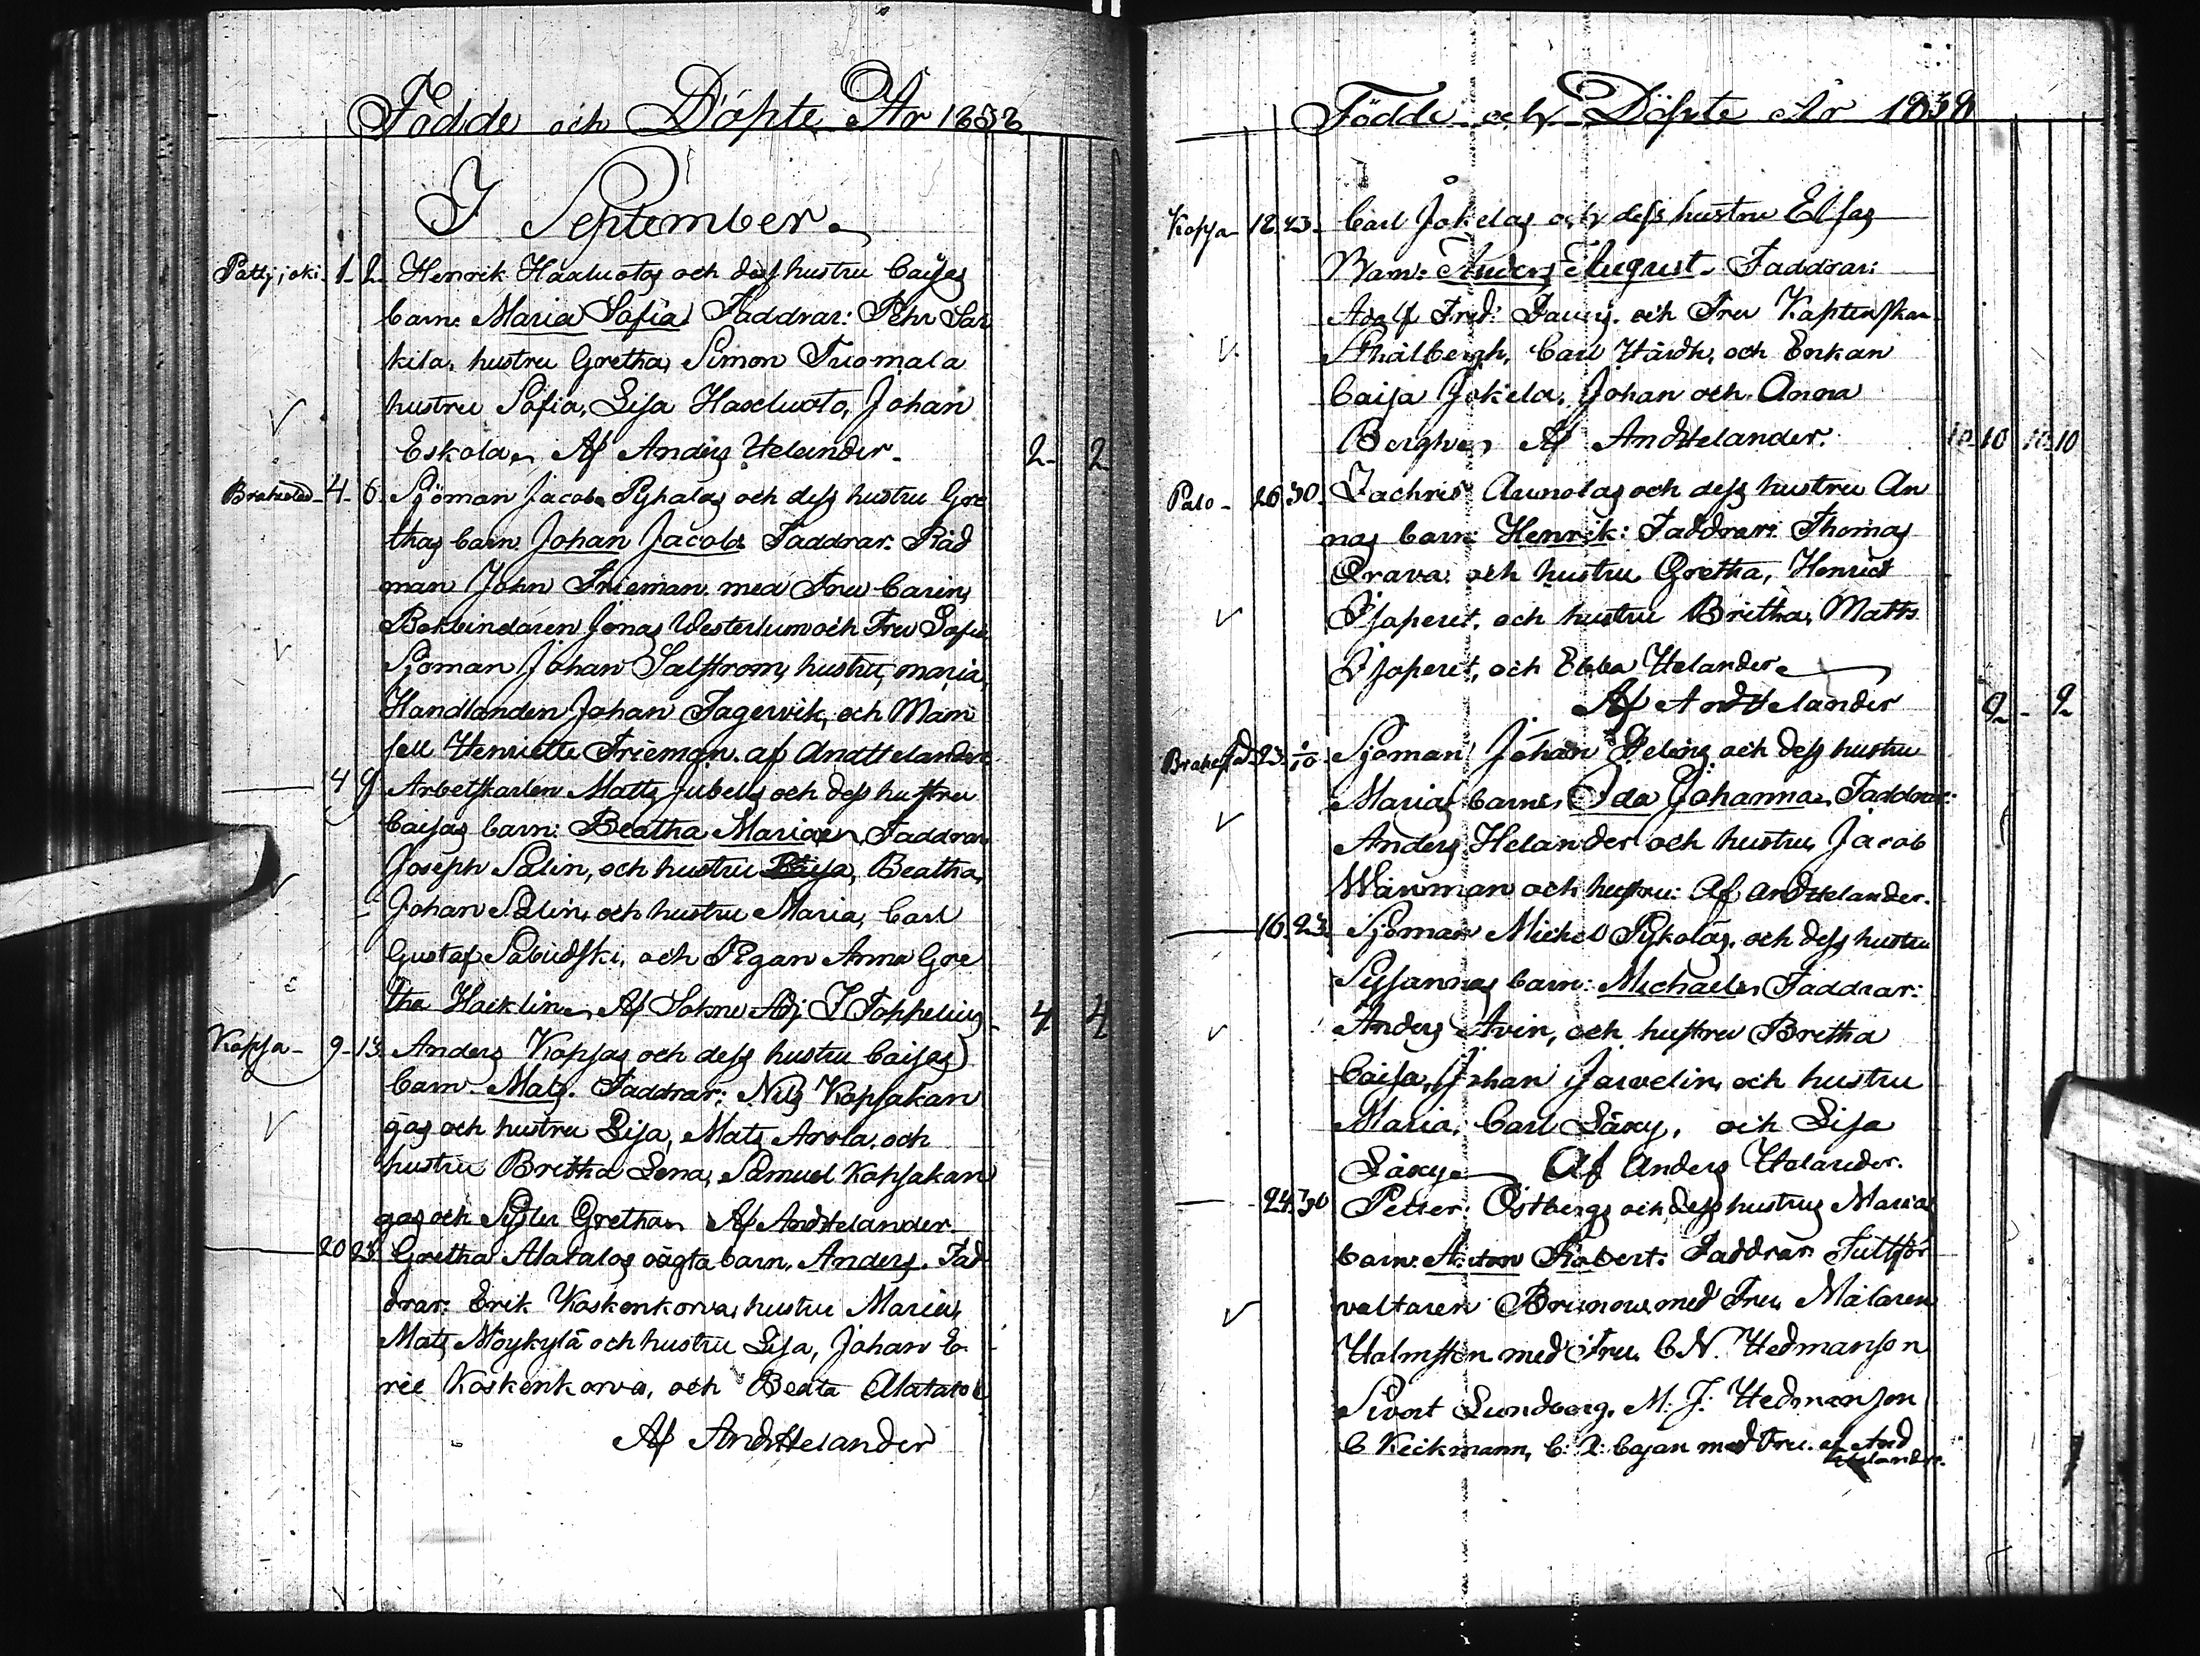 Födde och Döpte År 1838
I September.
Pattijoki 1 2 Henrik Haaluotos och dess hustru Caijsas
barn: Maria Sofia Faddrar: Pehr Sar
kila, hustru Gretha, Simon Tuomala
hustru Sofia, Lisa Haaluoto, Johan
Eskola, Af Anders Helander. 2 2
Brahestad 4 6 Sjöman Jacob Pyhalas och dess hustru Gre
thas barn: Johan Jacob Faddrar: Råd
man John Frieman med Fru Carin,
Bokbindaren Jonas Westerlund och Fru Sofia
Sjöman Johan Salström, hustru, maria,
Handlanden Johan Fagervik, och Mam
sell Henriette Frieman. af And Helander
4 9 Arbetskarlen Matts Jubels och dess hustru
Caijsas barn: Beatha Maria, Faddrar
Joseph Salin, och hustru Beatha,
Johan Salin, och hustru Maria, Carl
Gustaf och Pigan Anna Gre
tha Hacklin, Af Sokne Adj: I Toppelius 4 4
Kopsa 9 13 Anders Kopsas och dess hustru Caijsas
barn Mats. Faddrar: Nils Kopsakan
gas och hustru Lisa, Mats Arola, och
hustru Britha Lena, Samuel Kopsakan
gas och Syster Gretha Af And Helander
20 23 Gretha Alatalos oägta barn, Anders. Fad
drar: Erik Koskenkorva, hustru Maria,
Mats Möykylä och hustru Lisa, Johan E
ric Koskenkorva, och Beata Alatalo
Af And Helander
Födde och Döpte År 1838
Kopsa 18 23 Carl Jokelas och dess hustru Elsas
Barn: Anders August. Faddrar:
Adolf Fred: och Fru Kaptenskan
Sthålbergh, Carl Hårdh, och Enkan
Caisa Jokela, Johan och Anna
Bergh Af And Helander. 10 10 10 10
Palo 26 30 Zachris Aunolas och dess hustru An
nas barn: Henrik: Faddrar: Thomas
Orava och hustru Gretha, Henrick
Isoperet, och hustru Britha, Matts
Isoperet, och Ebba Helander
Af And Helander 2 2
Brahestad 23 1/10 Sjöman Johan och dess hustru
Marias barn, Ida Johanna, Faddrar:
Anders Helander och hustru, Jacob
Wänman och hustru: Af And Helander.
16 23 Sjöman Michel Pykolas, och dess hustru
Susannas barn: Michael, Faddrar:
Anders Avin, och hustru Britha
Caisa, Johan Jarvelin, och hustru
Maria, Carl Laxy, och Lisa
Laxy Af Anders Helander.
24 30 Petter Östbergs och dess hustrus Marias
barn: Anton Robert. Faddrar: Tullför
valtaren Brunow med Fru, Målaren
Holmsten med Fru. C N. Hedmanson
Sivert Lundberg, M. J. Hedmanson
C Keckmann, C: A: Cajan med Fru. af And
Helander.